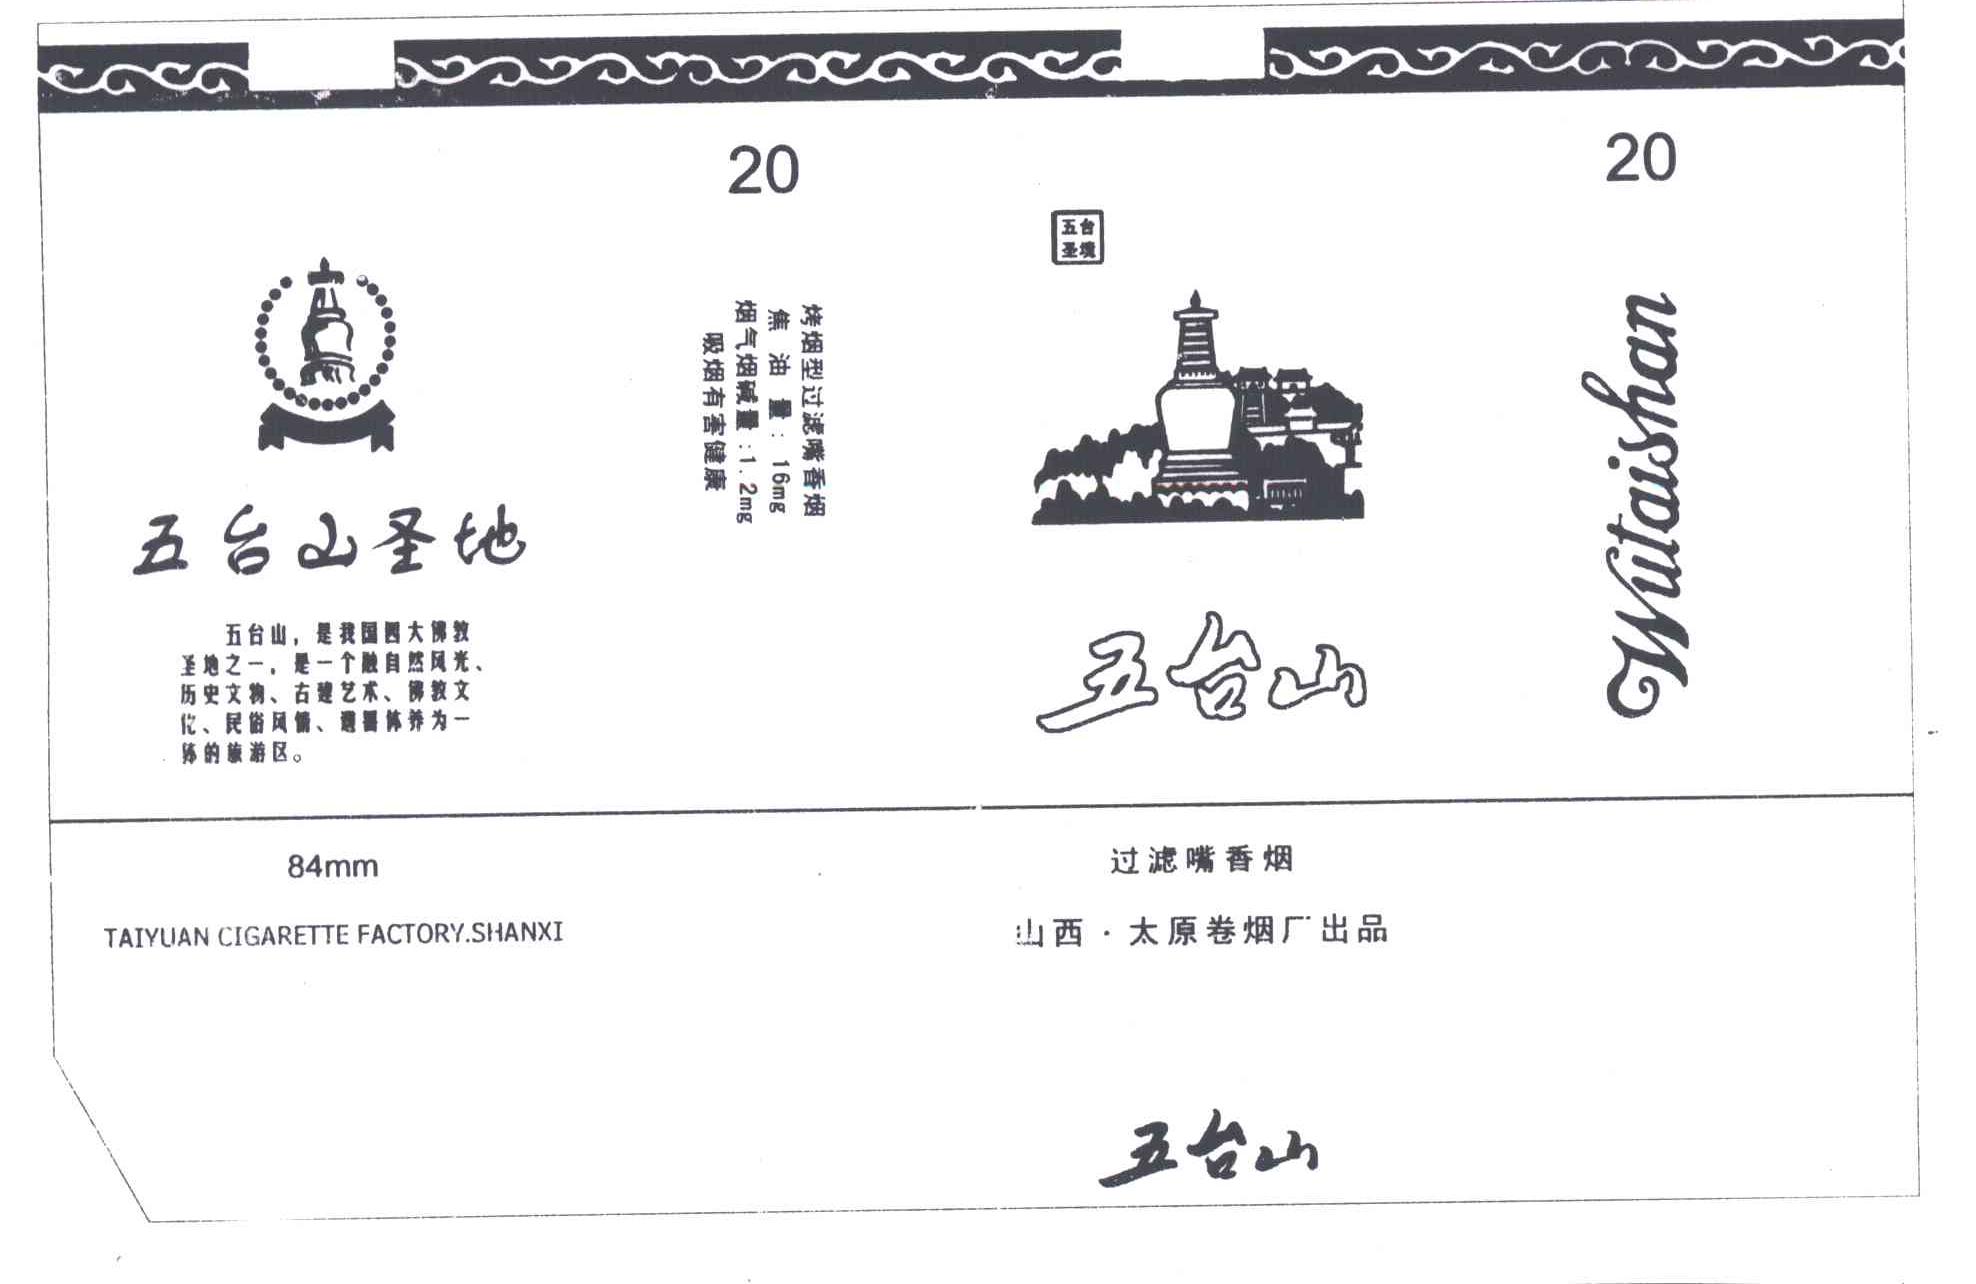 五台山圣地
五台山，是我国四大佛教
圣地之一，是一个融自然风光、
历史文物、古建艺术、佛教文
化、民俗风情、避暑休养为一
体的旅游区。
20
烤烟型过滤嘴香烟
焦油量：16mg
烟气烟碱量：1.2mg
吸烟有害健康
五台
圣境
五台山
20
Wutaishan
84mm
TAIYUAN CIGARETTE FACTORY.SHANXI
过滤嘴香烟
山西·太原卷烟厂出品
五台山